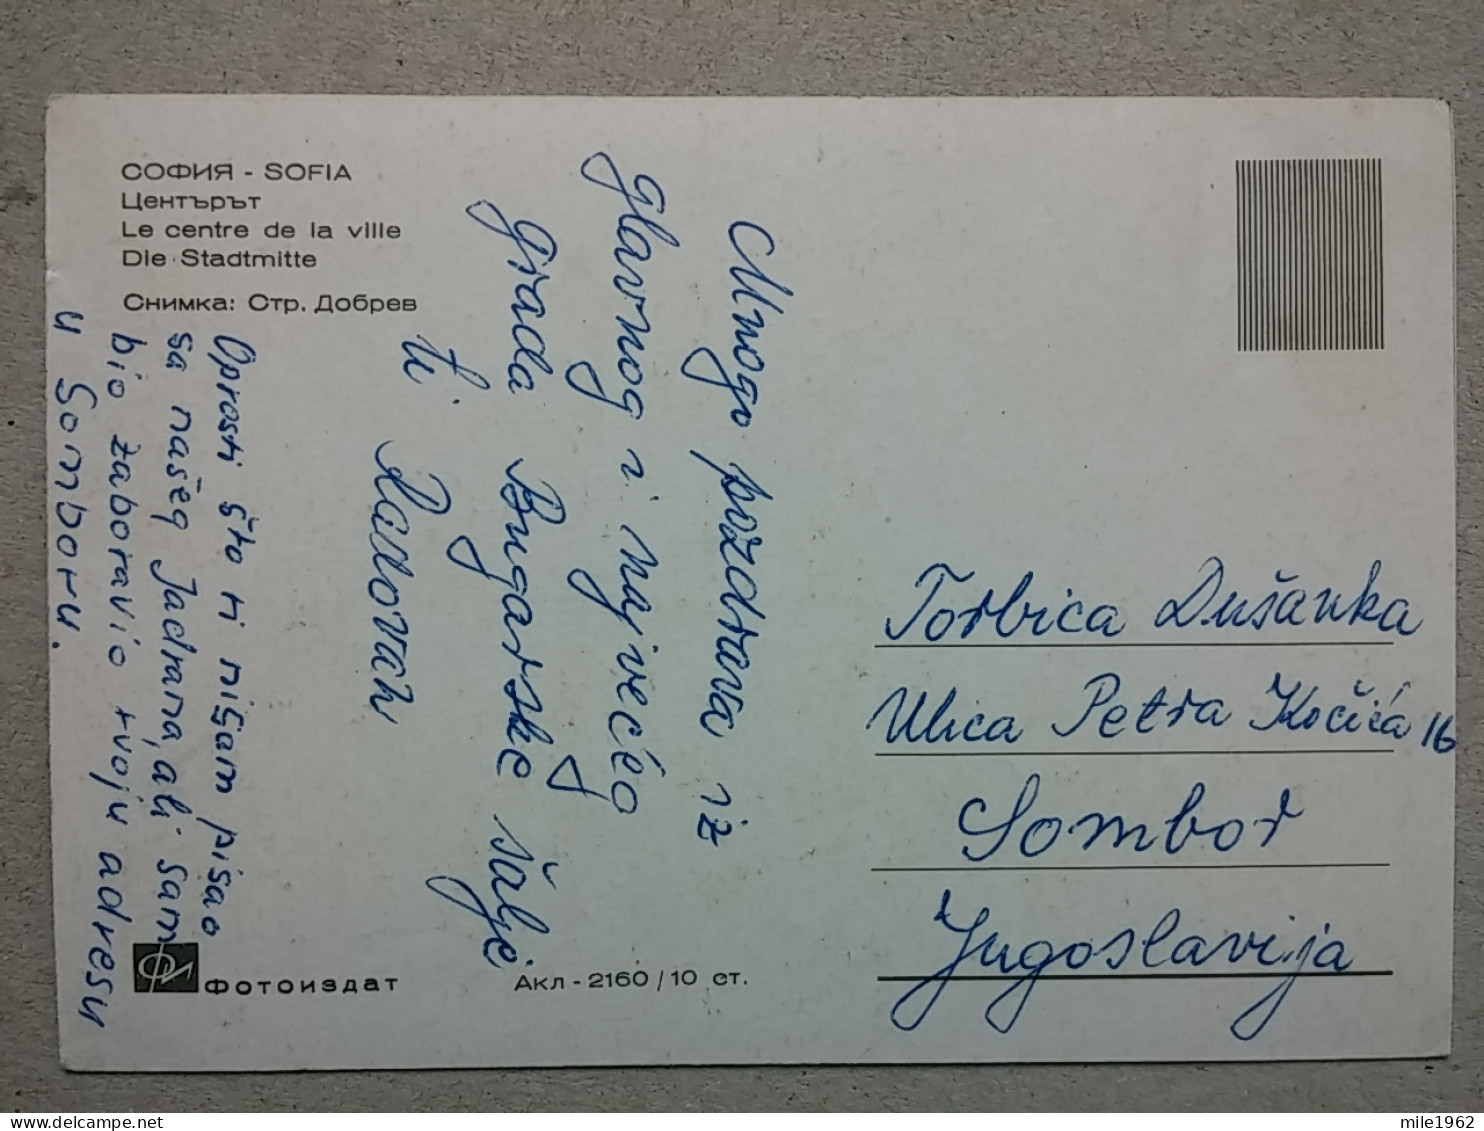 СОФИЯ - SOFIA
Центърът
Le centre de la ville
Die Stadtmitte
Снимка: Стр. Добрев
Mnogo pozdrava iz
glavnog i najvećeg
grada Bugarske šalje
ti Radovan
Oprosti što ti nisam pisao
sa našeg Jadrana, ali sam
bio zaboravio tvoju adresu
u Somboru.
Torbica Dušanka
Ulica Petra Kočića 16
Sombor
Jugoslavija
ФИ ФОТОИЗДАТ
Акл - 2160 / 10 ст.
mile1962